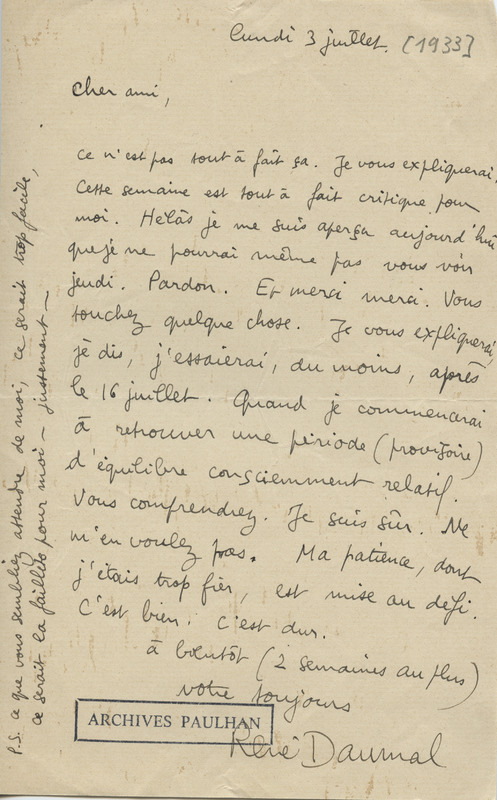 Lundi 3 juillet. [1933]
Cher ami,
ce n'est pas tout à fait ça. Je vous expliquerai.
Cette semaine est tout à fait critique pour
moi. Hélàs je me suis aperçu aujourd'hui
que je ne pourrai même pas vous voir
jeudi. Pardon. Et merci merci. Vous
touchez quelque chose. Je vous expliquerai,
je dis, j'essaierai, du moins, après
le 16 juillet. Quand je commencerai
à retrouver une période (provisoire)
d'équilibre consciemment relatif.
Vous comprendrez. Je suis sûr. Ne
m'en voulez pas. Ma patience, dont
j'étais trop fier, est mise au défi.
C'est bien. C'est dur.
à bientôt (2 semaines au plus)
votre toujours
René Daumal
ARCHIVES PAULHAN
P.S. ce que vous sembliez attendre de moi, ce serait trop facile,
ce serait la faillite pour moi – justement –